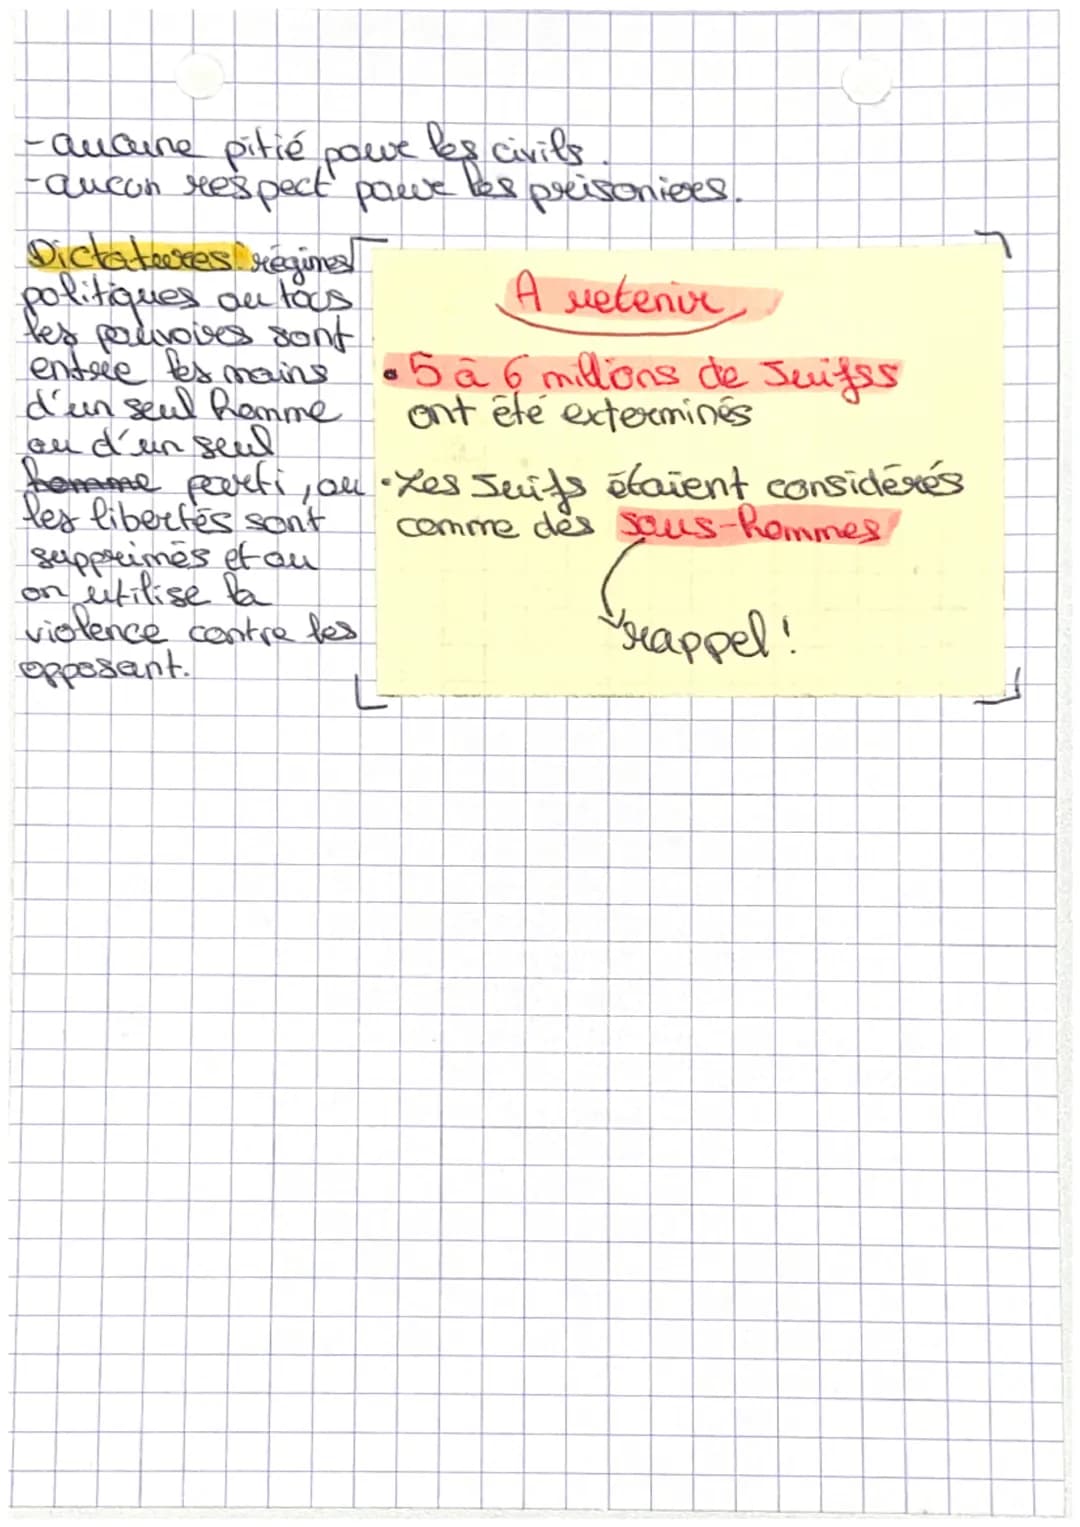 -aucune pitié pour les civils.
-aucun respect pour les prisoniers.
Dictatures: régimes
politiques ou tous
les pouvoirs sont
entre les mains
d'un seul homme
ou d'un seul
homme parti, ou
les libertés sont
supprimés et ou
on utilise la
violence contre les
opposant.
A retenir
• 5 à 6 millions de Juifss
ont été exterminés
• Les Juifs étaient considérés
comme des sous-hommes
rappel !